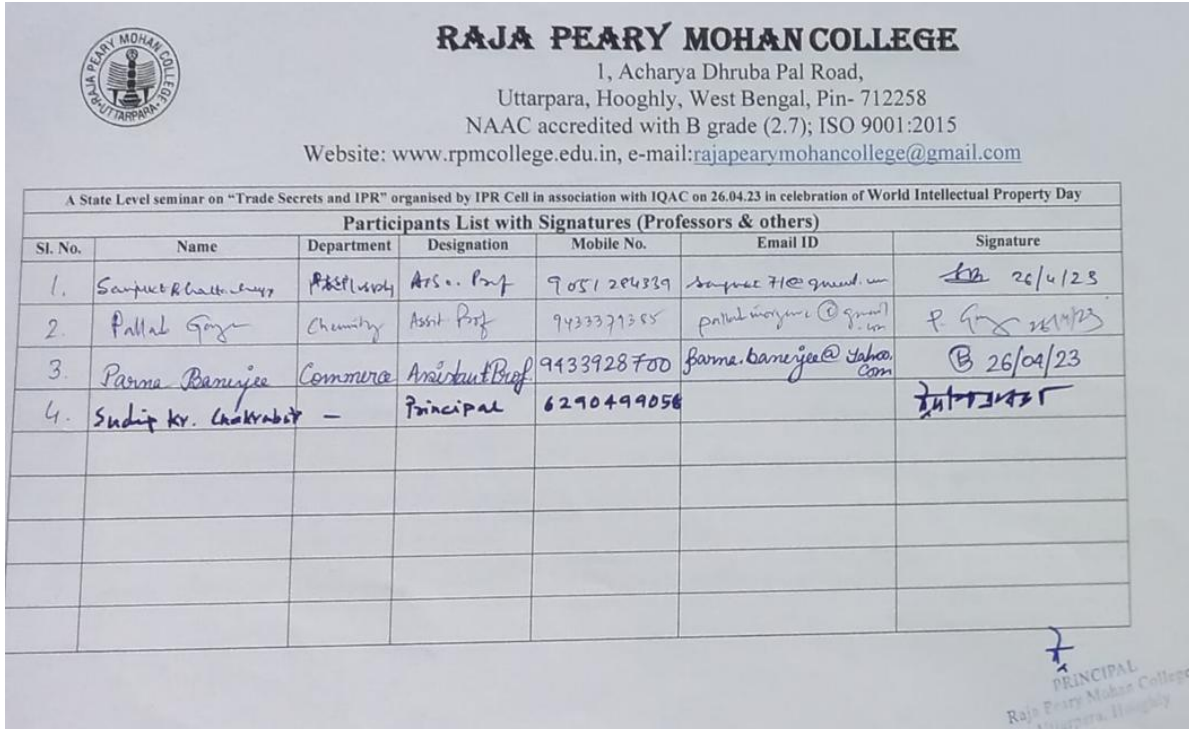 RAJA PEARY MOHAN COLLEGE · UTTARPARA ·
RAJA PEARY MOHAN COLLEGE
1, Acharya Dhruba Pal Road,
Uttarpara, Hooghly, West Bengal, Pin- 712258
NAAC accredited with B grade (2.7); ISO 9001:2015
Website: www.rpmcollege.edu.in, e-mail:rajapearymohancollege@gmail.com
A State Level seminar on “Trade Secrets and IPR” organised by IPR Cell in association with IQAC on 26.04.23 in celebration of World Intellectual Property Day
Participants List with Signatures (Professors & others)
Sl. No. Name Department Designation Mobile No. Email ID Signature
1. 9051284339 26/4/23
2. Assit Prof
3. Parna Banerjee Commerce Assistant Prof 9433928700 parna.banerjee@yahoo.com B 26/04/23
4. Sudip Kr. – Principal 6290499056
PRINCIPAL
Raja Peary Mohan College
Uttarpara, Hooghly